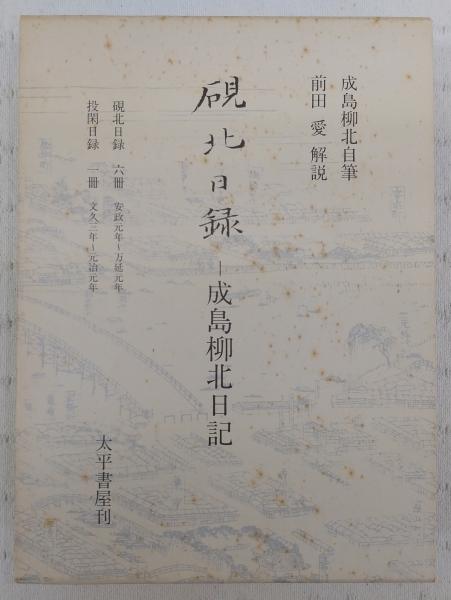 成島柳北自筆
前田 愛 解説
硯北日録
―成島柳北日記
硯北日録 六冊 安政元年~万延元年
投閑日録 一冊 文久三年~元治元年
太平書屋刊